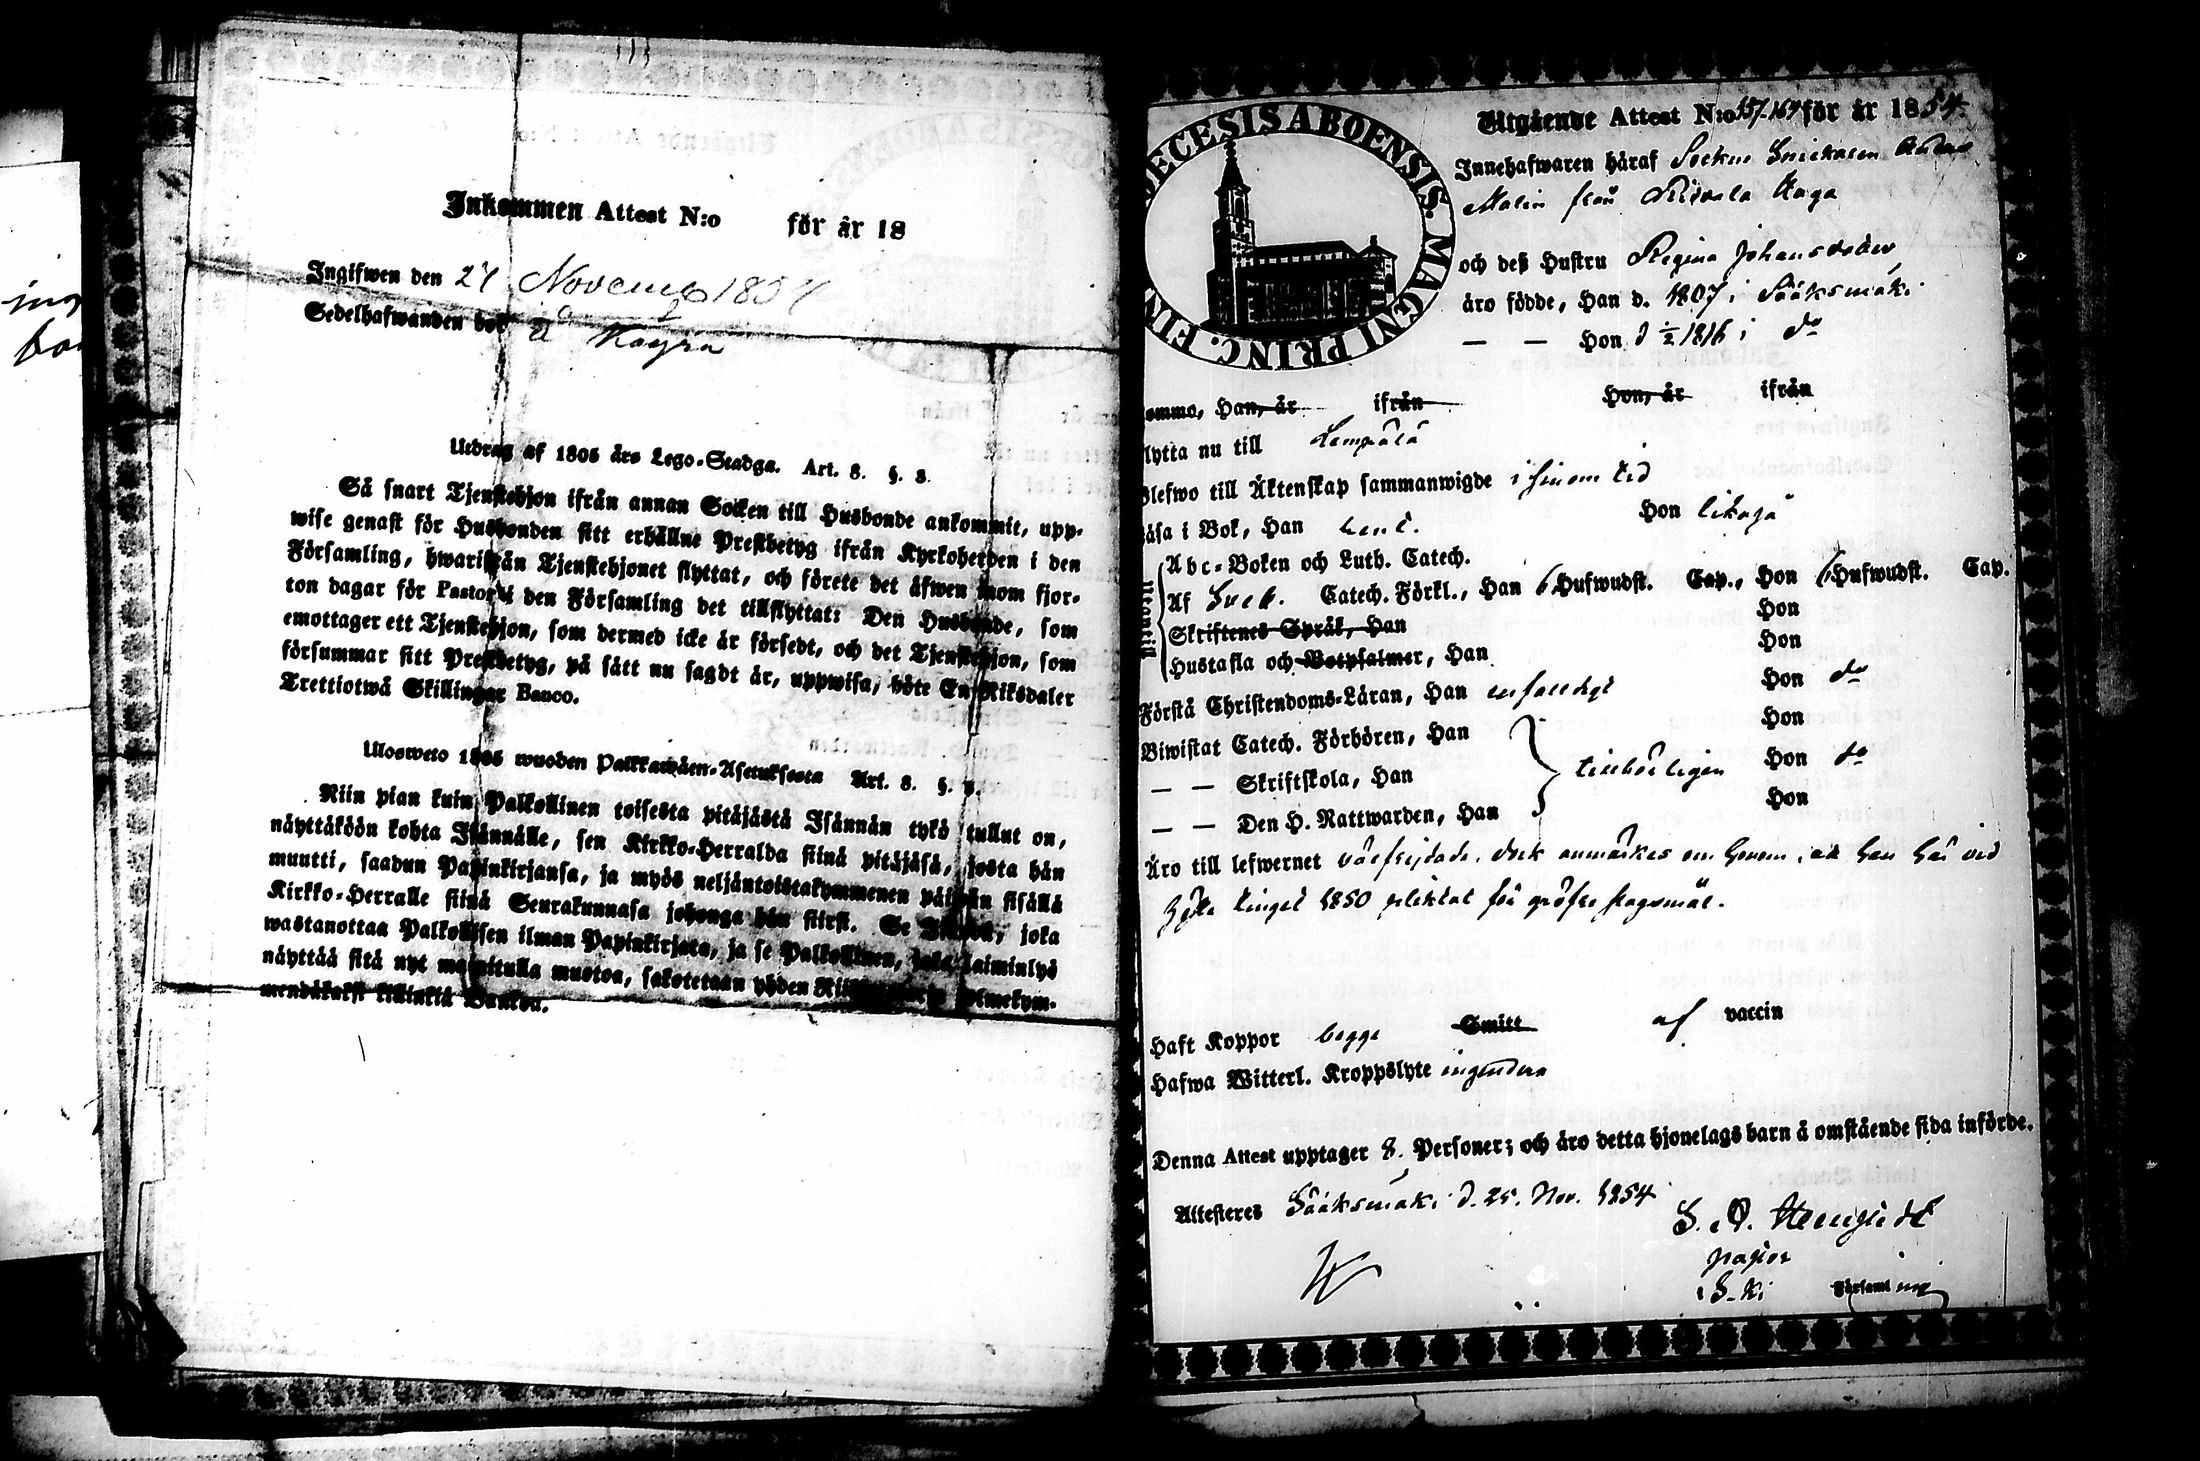 Inkommen Attest N:o för år 18
Ingifwen den 24 Novemb 1854
Sedelhafwanden bor å
Utdrag af 1805 års Lego-Stadga. Art. 8. §. 3.
Så snart Tjenstehjon ifrån annan Socken till Husbonde ankommit, upp-
wise genast för Husbonden sitt erhållne Prestbetyg ifrån Kyrkoherden i den
Församling, hwarifrån Tjenstehjonet flyttat, och förete det äfwen inom fjor-
ton dagar för Pastor i den Församling det tillflyttat: Den Husbonde, som
emottager ett Tjenstehjon, som dermed icke är försedt, och det Tjenstehjon, som
försummar sitt Prestbetyg, på sätt nu sagdt är, uppwisa, böte En Riksdaler
Trettiotwå Skillingar Banco.
Ulosweto 1805 wuoden Palkkawäen-Asetuksesta Art. 8. §. 3.
Niin pian kuin Palkollinen toisesta pitäjästä Isännän tykö tullut on,
näyttäköön kohta Isännälle, sen Kirkko-Herralda siinä pitäjäsä, josta hän
muutti, saadun Papinkirjansa, ja myös neljäntoistakymmenen päiwän sisällä
Kirkko-Herralle siinä Seurakunnasa johonga hän siirsi. Se Isäntä, joka
wastanottaa Palkollisen ilman Papinkirjata, ja se Palkollinen, joka laiminlyö
näyttää sitä nyt mainitulla muotoa, sakotetaan yhden Riikin kolmekym-
mendäkaksi killinkiä Bankoa.
DIOECESIS ABOENSIS. MAGNI PRINC. FIN
Utgående Attest N:o 157-164 för år 1854.
Innehafwaren häraf Sockne Snickaren Adam
Malin från Ridvala Haga
och deß Hustru Regina Johansdotter
äro födde, Han d. 1807 i Sääksmäki
— — Hon d 1/2 1816 i do
ommo, Han, år ifrån Hon, år ifrån
lytta nu till Lempälä
Blefwo till Äktenskap sammanwigde i sinom tid
äsa i Bok, Han rent. Hon likaså
Abc-Boken och Luth. Catech.
Af Sveb. Catech. Förkl., Han 6 Hufwudst. Cap., Hon 6 Hufwudst. Cap.
Skriftenes Språk, Han Hon
Hustafla och Botpsalmer, Han Hon
Förstå Christendoms-Läran, Han enfaldigt Hon do
Biwistat Catech. Förhören, Han Hon
— — Skriftskola, Han tillbörligen Hon do
— — Den H. Nattwarden, Han Hon
Äro till lefwernet välfrejdade, dock anmärkes om honom, att han har vid
tinget 1850 pliktat för gröfre slagsmål.
Haft Koppor begge Smitt af vaccin
Hafwa Witterl. Kroppslyte ingendera
Denna Attest upptager 8. Personer; och äro detta hjonelags barn å omstående sida införde.
Attesteres Sääksmäki d. 25. Nov. 1854
pastor
S-ki Församling